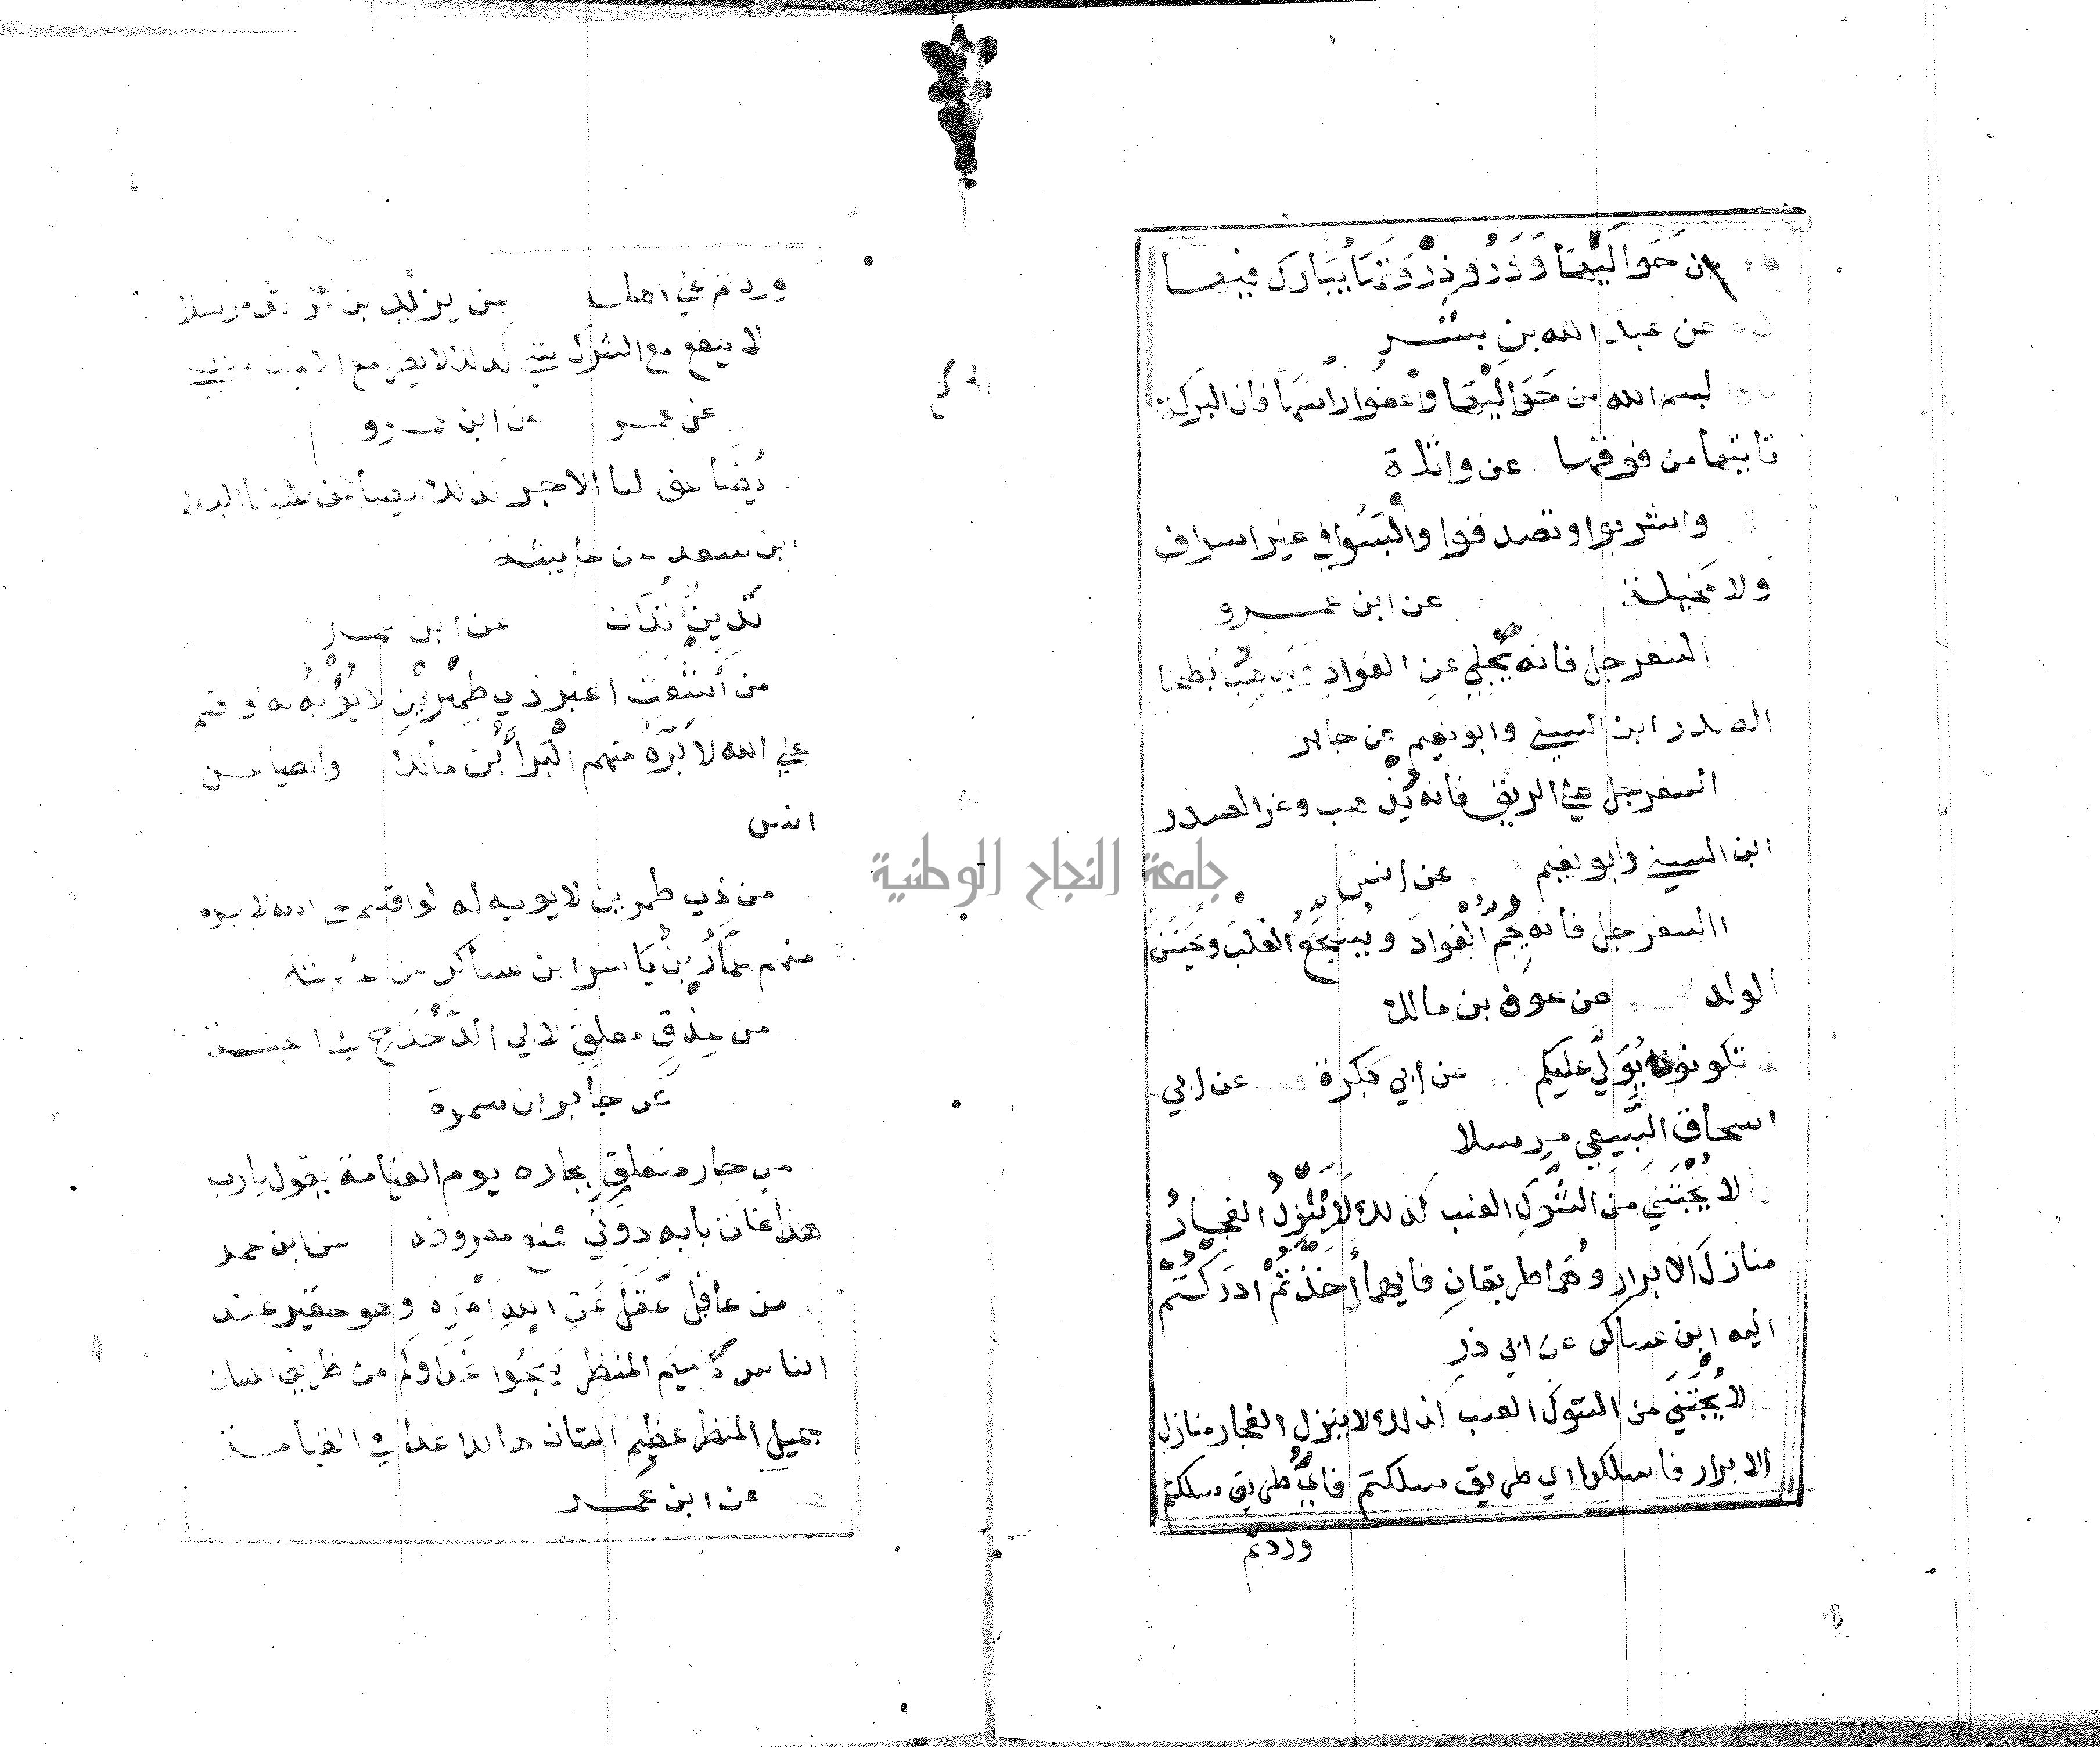 من حَوَالَيْهَا وَذَرُو ذِرْوَتَهَا يُبَارَك فيها
عن عبد الله بن بسر
بسم الله من حَوَالَيْهَا واعفوا رَاسَهَا فان البركة
تاتيها من فوقها عن واثلة
واشربوا وتصدقوا والْبَسُوا في غير اسراف
ولا مَخِيلة عن ابن عمرو
السفرجل فانه يُجَلي عن الفواد وَيذهب بطخا
الصدر ابن السني وابو نعيم عن جابر
السفرجل على الريق فانه يُذهب وغر الصدر
ابن السني وابو نعيم عن انس
السفرجل فانه يُجِمُّ الْفوادَ ويُشَجِّعُ القلبَ ويحَسِّن
الولد عن عوف بن مالك
تكونوا يُوَلَّي عليكم عن ابي بَكرة عن ابي
اسحاق السَّبيعي مرسلا
لا يُجْتَنَي مِنَ الشَّوكِ العنب كذلك لَا يَنْزِلُ الفجارُ
منازلَ الابرار وهُمَا طريقانِ فايهما أَخَذْتُمْ ادرَكْتُمْ
اليه ابن عساكر عن ابي ذر
لا يُجْتَنَي من الشوك العنب كذلك لا ينزل الفجار منازل
الابرار فاسلكوا اي طريق سلكتم فايُّ طريق سلكتم
وردتم
وردتم علي اهله عن يزيد بن مرثد مرسلا
لا ينفع مع الشرك شي كذلك لا يضر مع الايمان شي
عن عمر عن ابن عمرو
يُضَاعف لنا الاجر كذلك يضاعف علينا البلا
ابن سعد عن عايشة
تَدِينُ تُدَان عن ابن عمر
من أشعث اغبر ذي طِمْرَيْنِ لا يُؤْبَهُ له لو اقسم
علي الله لاَبَرَّهُ منهم الْبَرَأُ بْن مالك والضيا عن
انس
من ذي طمرين لا يوبه له لو اقسم علي الله لابره
منهم عَمَّارُ بْنُ يَاسر ابن عساكر عن عايشة
من عِذقٍ معلقٍ لابي الدَّحْدَاح في الجنة
عن جابر بن سمرة
من جار متعلقٍ بجاره يوم القيامة يقول يارب
هذا غلق بابه دوني فمنع معروفه عن ابن عمر
من عاقل عَقَلَ عَنِ اللهِ اَمْرَه وهو حقير عند
الناس ذميم المنظر يَنجُوا غَدا وكم من ظريف اللسان
جميل المنظر عظيم الشان هالك غدا في القيامة
عن ابن عمر
جامعة النجاح الوطنية